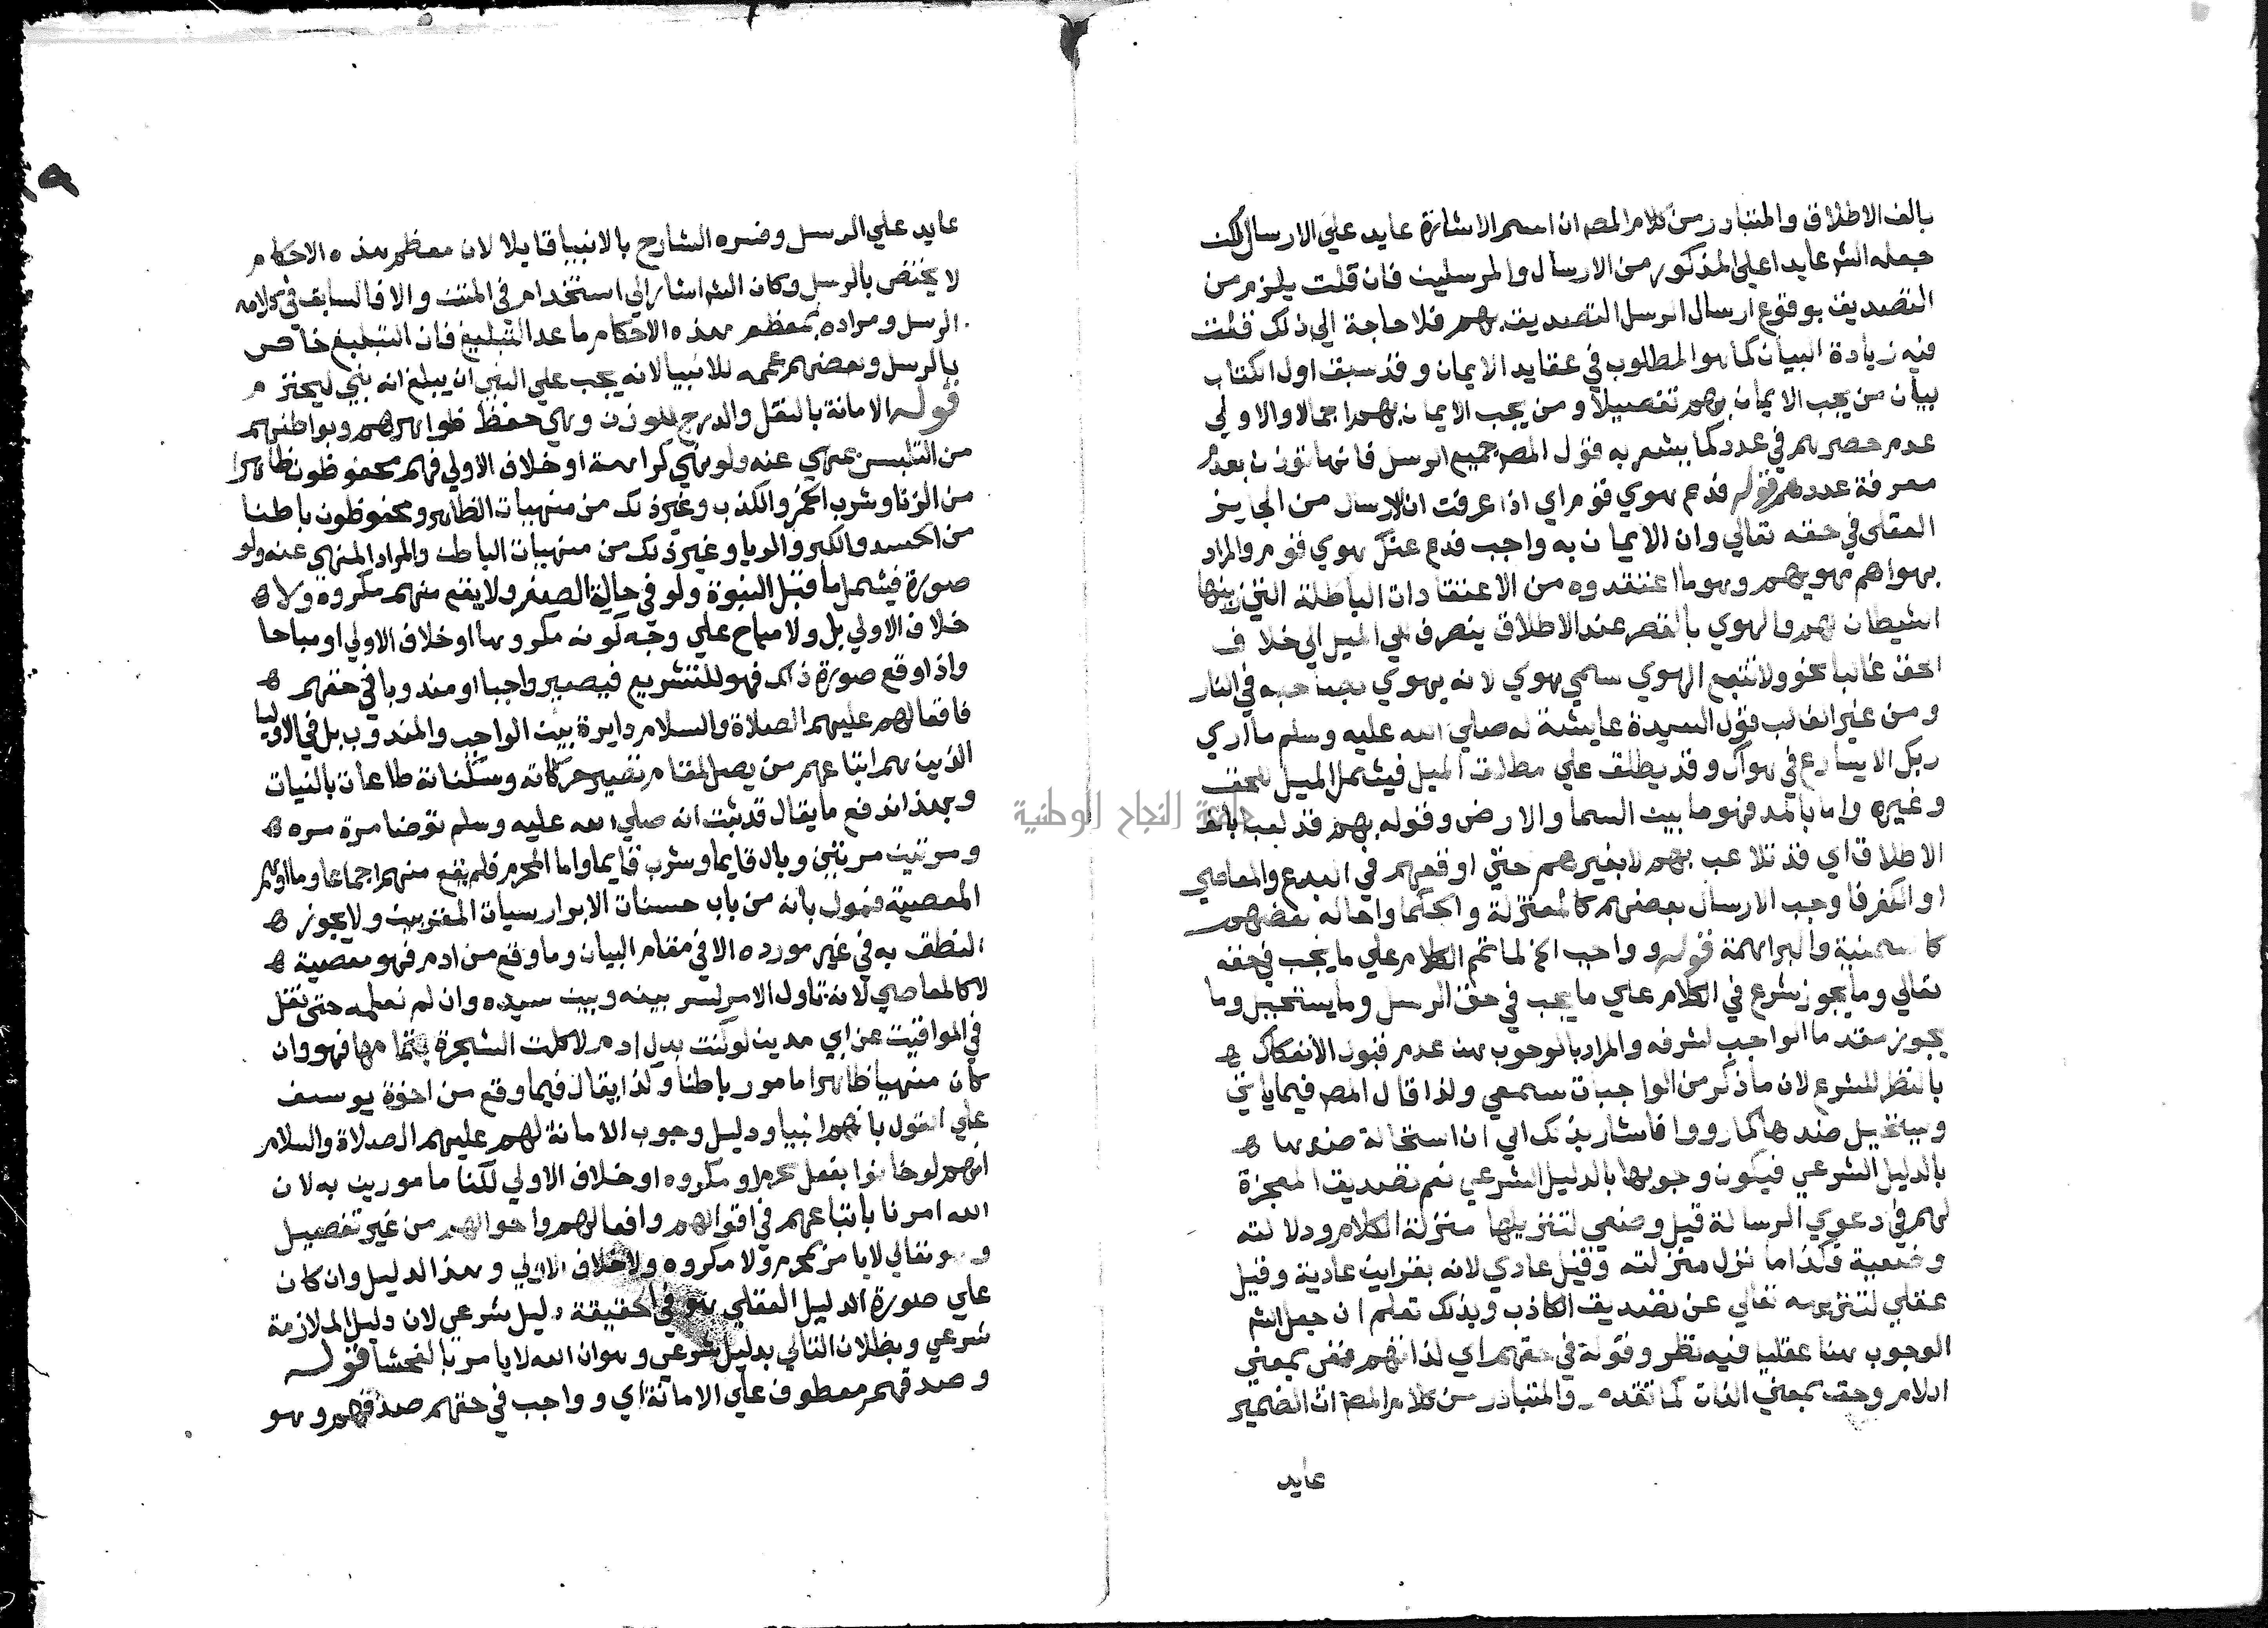 بالف الاطلاق والمتبادر من كلام المصه ان اسم الاشارة عايد علي الارسال لكن
جعله الشه عايدا علي المذكور من الارسال والمرسلين فان قلت يلزم من
التصديق بوقوع ارسال الرسل التصديق بهم فلا حاجة الي ذلك قلت
فيه زيادة البيان كما هو المطلوب في عقايد الايمان وقد سبق اول الكتاب
بيان من يجب الايمان بهم تفصيلا ومن يجب الايمان بهم اجمالا والاولي
عدم حصرهم في عدد كما يشعر به قول المصه جميع الرسل فانها توذن بعدم
معرفة عددهم قوله فدع هوي قوم اي اذا عرفت ان الارسال من الجايز
العقلي في حقه تعالي وان الايمان به واجب فدع عنك هوي قوم والمراد
بهواهم مهويهم وهو ما اعتقدوه من الاعتقادات الباطلة التي زينها
الشيطان لهم والهوي بالقصر عند الاطلاق ينصرف الي الميل الي خلاف
الحق غالبا نحو ولا تتبع الهوي سمي هوي لانه يهوي بصاحبه في النار
ومن غير الغالب قول السيدة عايشة له صلي الله عليه وسلم ما اري
ربك الا يسارع في هواك وقد يطلق علي مطلق الميل فيشمل الميل للحق
وغيره واما بالمد فهو ما بين السما والارض وقوله بهم قد لعبا بالف
الاطلاق اي قد تلاعب بهم لا بغيرهم حتي اوقعهم في البدع والمعاصي
او الكفر فاوجب الارسال بعضهم كالمعتزلة والحكما واحاله بعضهم
كالسمنية والبراهمة قوله وواجب الخ لما تمم الكلام علي ما يجب في حقه
تعالي وما يجوز شرع في الكلام علي ما يجب في حق الرسل وما يستحيل وما
يجوز مقدما الواجب لشرفه والمراد بالوجوب هنا عدم قبول الانفكاك
بالنظر للشرع لان ما ذكر من الواجبات سمعي ولذا قال المصه فيما ياتي
ويستحيل ضدها كما رووا فاشار بذلك الي ان استحالة ضدها
بالدليل الشرعي فيكون وجوبها بالدليل الشرعي نعم تصديق المعجزة
لهم في دعوي الرسالة قيل وضعي لتنزيلها منزلة الكلام ودلالته
وضعية فكذا ما نزل منزلته وقيل عادي لانه بقراين عادية وقيل
عقلي لتنزيهه تعالي عن تصديق الكاذب وبذلك تعلم ان جعل الشه
الوجوب هنا عقليا فيه نظر وقوله في حقهم اي لذاتهم ففي بمعني
اللام وحق بمعني الذات كما تقدم والمتبادر من كلام المصه ان الضمير
عايد
عايد علي الرسل وفسره الشارح بالانبيا قايلا لان معظم هذه الاحكام
لا يختص بالرسل وكان الشه اشار الي استخدام في المتن والا فالسابق في كلامه
الرسل ومراده بمعظم هذه الاحكام ما عدا التبليغ فان التبليغ خاص
بالرسل وبعضهم عممه للانبيا لانه يجب علي النبي ان يبلغ انه نبي ليحترم
قوله الامانة بالنقل والدرج للوزن وهي حفظ ظواهرهم وبواطنهم
من التلبس بمنهي عنه ولو نهي كراهة او خلاف الاولي فهم محفوظون ظاهرا
من الزنا وشرب الخمر والكذب وغير ذلك من منهيات الظاهر ومحفوظون باطنا
من الحسد والكبر والريا وغير ذلك من منهيات الباطن والمراد المنهي عنه ولو
صورة فيشمل ما قبل النبوة ولو في حالة الصغر ولا يقع منهم مكروه ولا
خلاف الاولي بل ولا مباح علي وجه كونه مكروها او خلاف الاولي او مباحا
واذا وقع صورة ذلك فهو للتشريع فيصير واجبا او مندوبا في حقهم
فافعالهم عليهم الصلاة والسلام دايرة بين الواجب والمندوب بل في الاوليا
الذين هم اتباعهم من يصل لمقام تصير حركاته وسكناته طاعات بالنيات
وبهذا اندفع ما يقال قد ثبت انه صلي الله عليه وسلم توضا مرة مرة
ومرتين مرتين وبال قايما وشرب قايما واما المحرم فلم يقع منهم اجماعا وما اوهم
المعصية فمول بانه من باب حسنات الابرار سيات المقربين ولا يجوز
النطق به في غير مورده الا في مقام البيان وما وقع من ادم فهو معصية
لا كالمعاصي لانه تاول الامر لسر بينه وبين سيده وان لم نعلمه حتي نقل
في اليواقيت عن ابي مدين لو كنت بدل ادم لاكلت الشجرة بتمامها فهو وان
كان منهيا ظاهرا مامور باطنا وكذا يقال فيما وقع من اخوة يوسف
علي القول بانهم انبيا ودليل وجوب الامانة لهم عليهم الصلاة والسلام
انهم لو خانوا بفعل محرم او مكروه او خلاف الاولي لكنا مامورين به لان
الله امرنا باتباعهم في اقوالهم وافعالهم واحوالهم من غير تفصيل
وهو تعالي لا يامر بمحرم ولا مكروه ولا خلاف الاولي وهذا الدليل وان كان
علي صورة الدليل العقلي هو في الحقيقة دليل شرعي لان دليل الملازمة
شرعي وبطلان التالي بدليل شرعي وهو ان الله لا يامر بالفحشا قوله
وصدقهم معطوف علي الامانة اي وواجب في حقهم صدقهم وهو
جامعة النجاح الوطنية